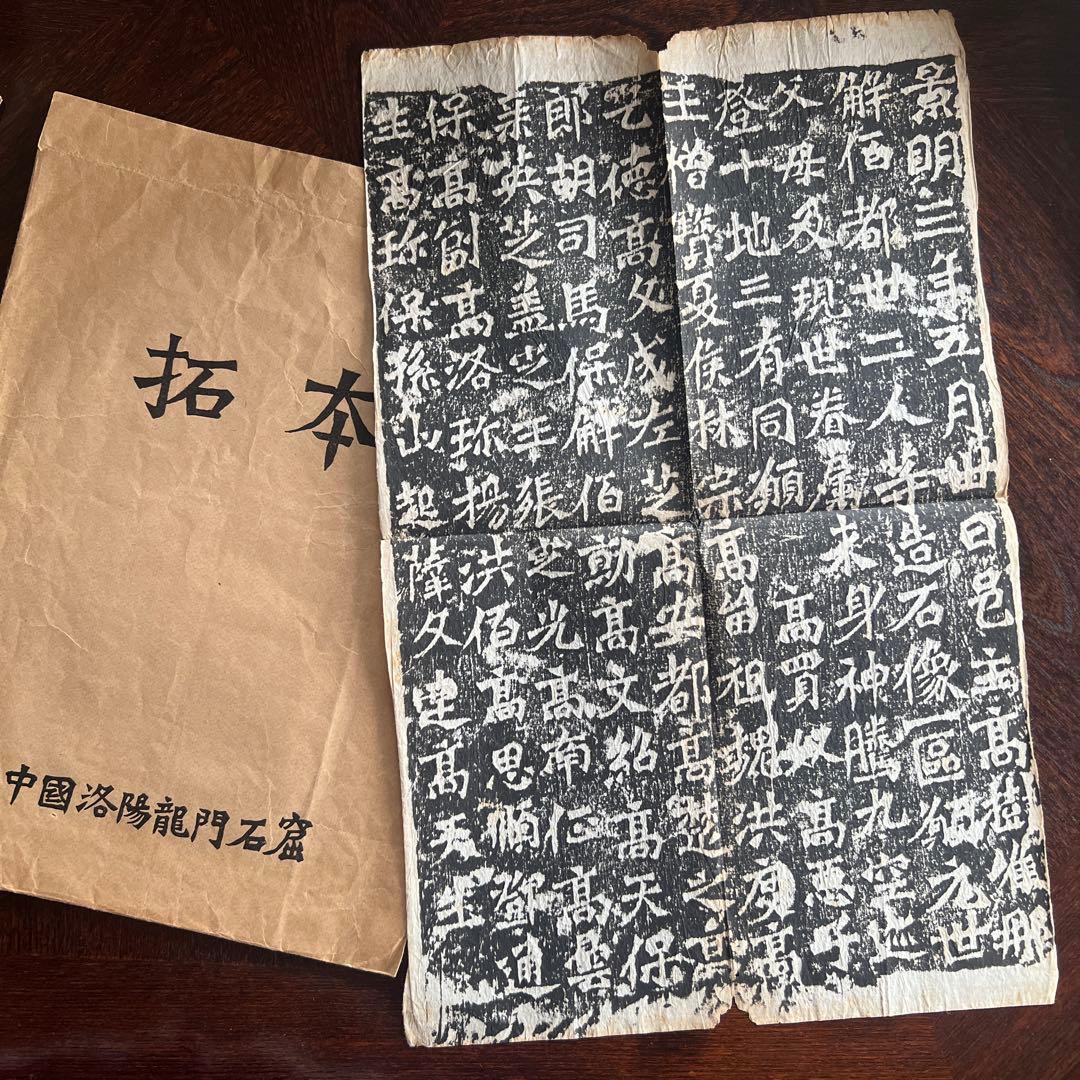 拓本
中國洛陽龍門石窟
景明三年五月卅日邑主高樹唯那
解佰都卅二人等造石像一區願元世
父母及現世眷屬来身神騰九空迹
登十地三有同願高買奴高惡子
王僧寶夏侯林宗高留祖魏洪度高
乞德高文成左芝高安都高楚之高
郎胡司馬保解伯勳高文紹高天保
英芝盖王張芝光高南高曇
保高副高洛珎楊洪佰高思順鄧通
生高珎保孫山起薩文達高天生